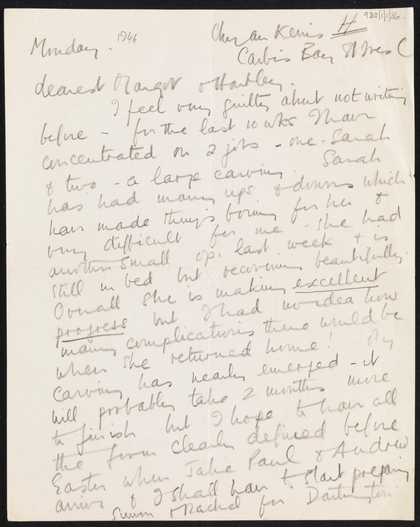 980/1/1/26
Monday. 1946 Chy an Kerris H
Carbis Bay St Ives C
dearest Margot & Hartley.
I feel very guilty about not writing
before - for the last 10 wks I have
concentrated on 2 jobs - one. Sarah
& two - a large carving. Sarah
has had many ups & downs which
have made things boring for her &
very difficult for me. She had
another small op. last week & is
still in bed but recovering beautifully.
Overall she is making excellent
progress but I had no idea how
many complications there would be
when she returned home! My
carving has nearly emerged - it
will probably take 2 months more
to finish but I hope to have all
the form clearly defined before
Easter when Jake Paul & Andrew
arrive & I shall have to start preparing
Simon & Rachel for Dartington.